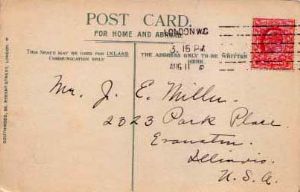 POST CARD.
FOR HOME AND ABROAD.
THIS SPACE MAY BE USED FOR INLAND
COMMUNICATION ONLY
THE ADDRESS ONLY TO BE WRITTEN
HERE.
LONDON W.C
3. 15 PM
AUG 11
Mr. J. E. Miller
2323 Park Place
Evanston
Illinois.
U.S.A.